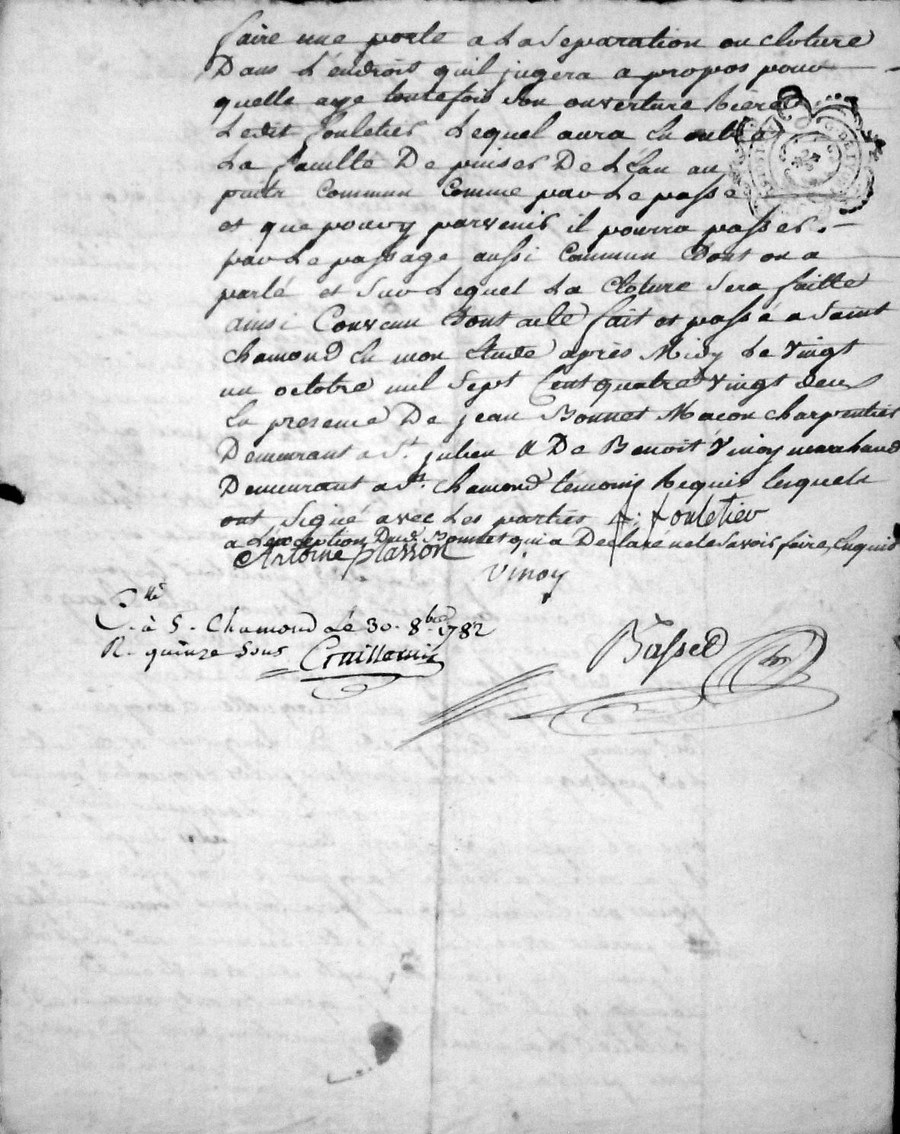 faire une porte a La Separation ou cloture
Dans L'endroit quil jugera a propos pour
quelle aye toutefois son ouverture
Ledit fouletier Lequel aura En outre
La faculté De puiser De L'Eau au
puits commun comme par Le passé
et que pour y parvenir il pourra passer
par Le passage aussi Commun Dont on a
parlé et Sur Lequel La Cloture Sera faitte
ainsi Convenu Dont acte fait et passé a Saint
chamond En mon Etude après Midy Le vingt
un octobre mil Sept Cent quatre vingt deux
En presence De jean Bonnet Macon charpentier
Demeurant a St. julien & De Benoit Vinoy marchand
Demeurant a St. chamond temoins Requis lesquels
ont Signé avec Les parties f: fouletier
a L'exception Dud. Bonnet qui a Declaré ne le Savoir faire, Enquis
Antoine plasson
Vinoy
C. lle
. à S. Chamond Le 30. 8bre 1782
R. quinze Sous
Basset